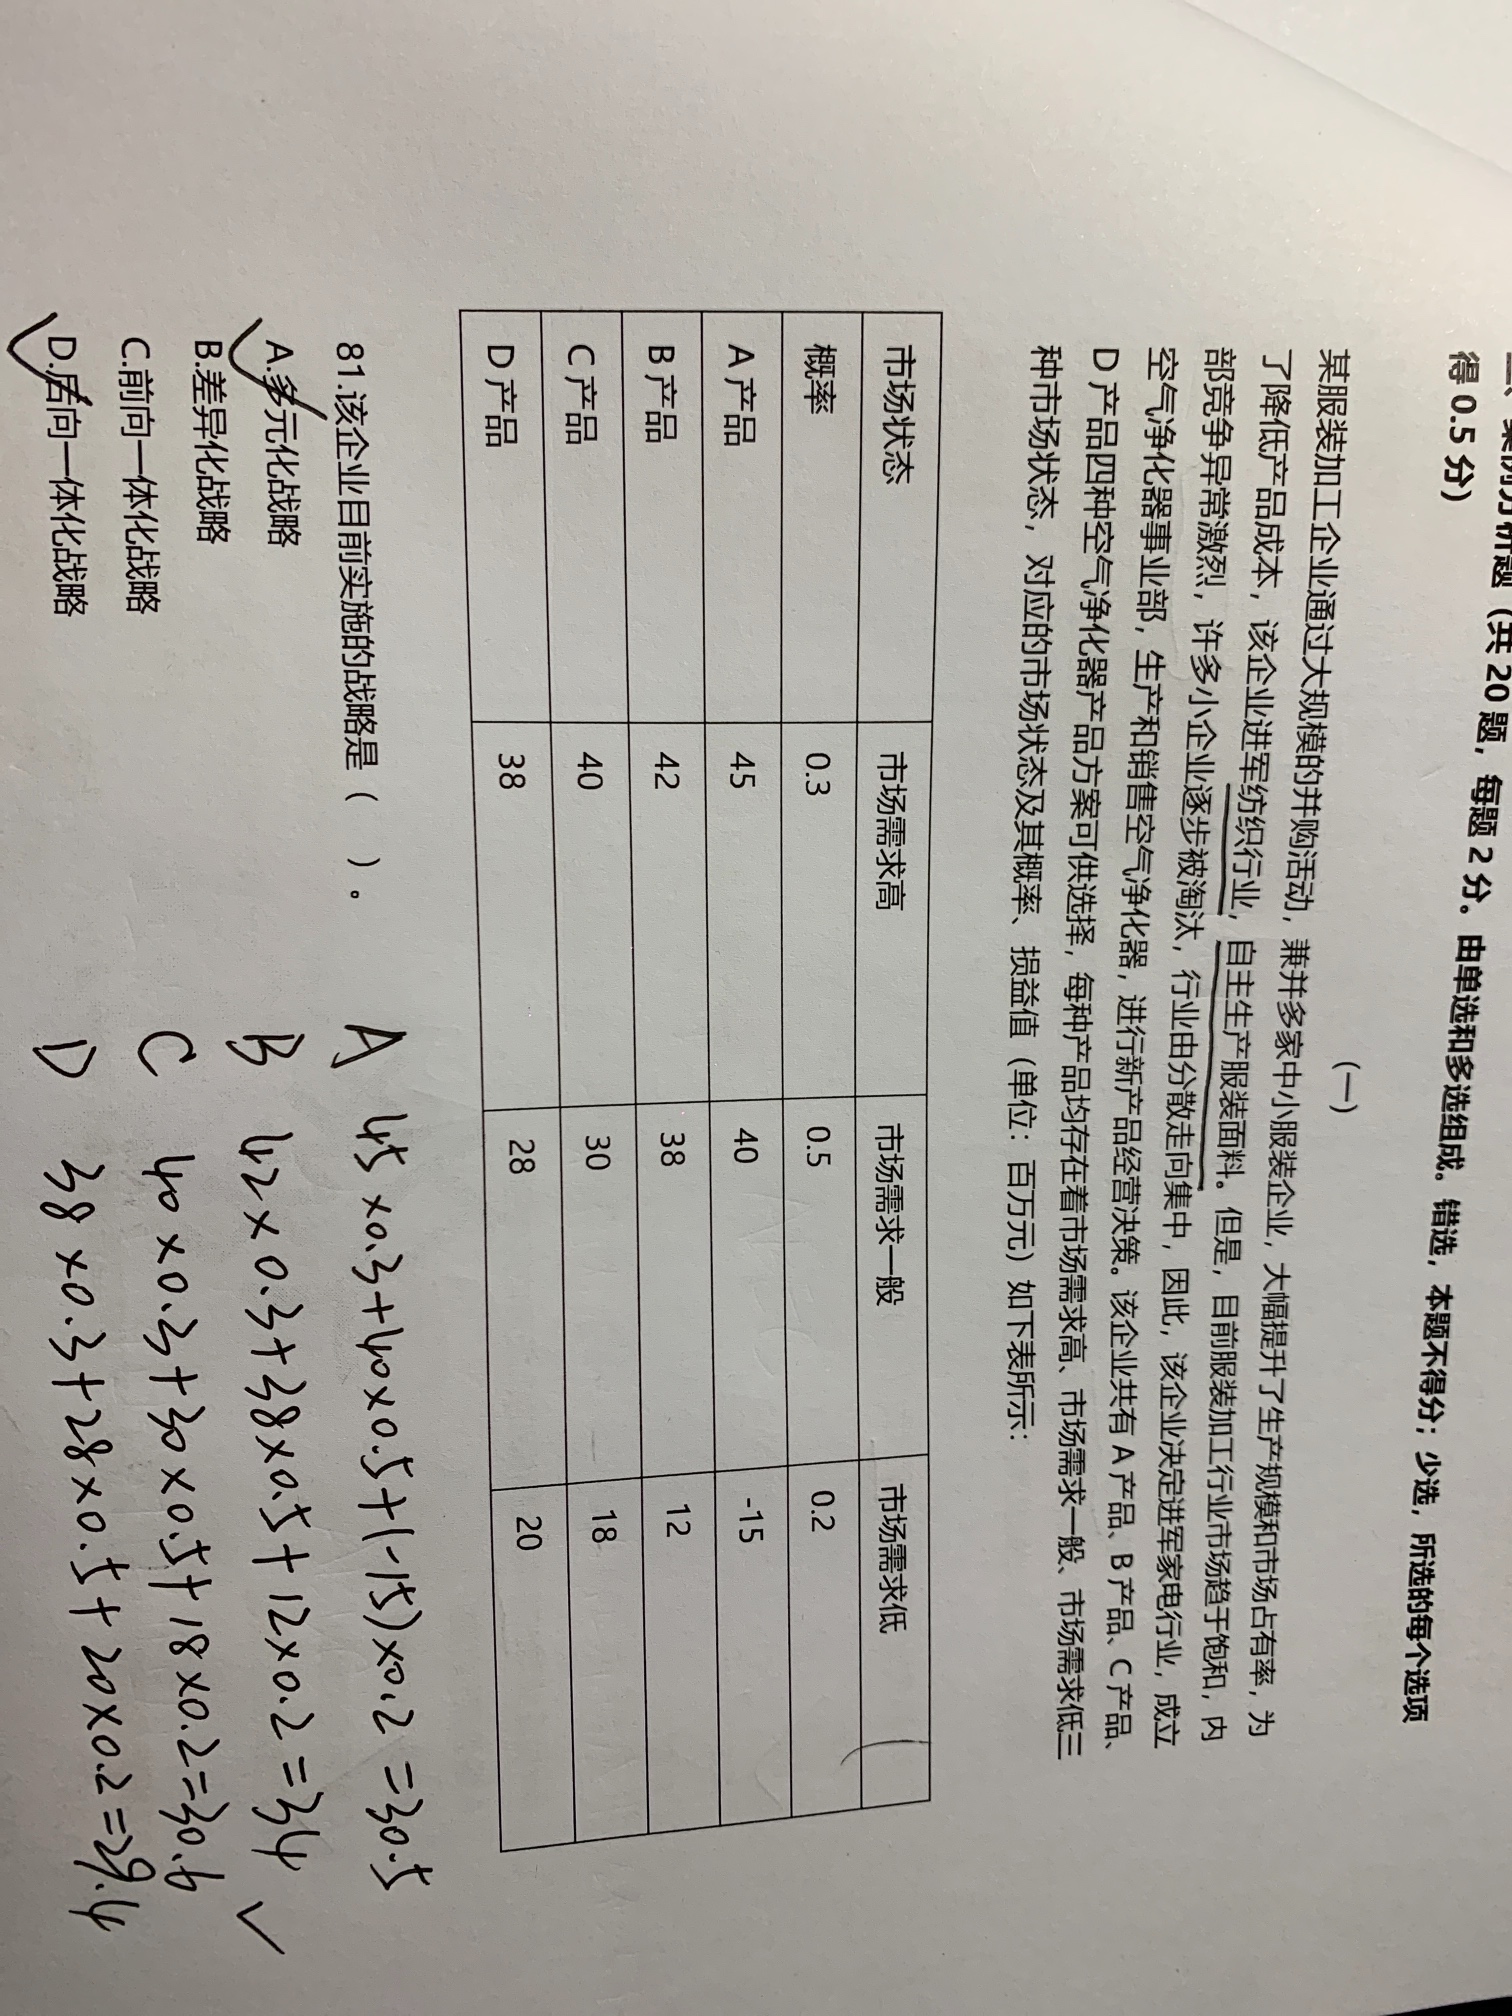 案例分析题（共 20 题，每题 2 分。由单选和多选组成。错选，本题不得分；少选，所选的每个选项
得 0.5 分）
（一）
某服装加工企业通过大规模的并购活动，兼并多家中小服装企业，大幅提升了生产规模和市场占有率，为
了降低产品成本，该企业进军纺织行业，自主生产服装面料。但是，目前服装加工行业市场趋于饱和，内
部竞争异常激烈，许多小企业逐步被淘汰，行业由分散走向集中，因此，该企业决定进军家电行业，成立
空气净化器事业部，生产和销售空气净化器，进行新产品经营决策。该企业共有 A 产品、B 产品、C 产品、
D 产品四种空气净化器产品方案可供选择，每种产品均存在着市场需求高、市场需求一般、市场需求低三
种市场状态，对应的市场状态及其概率、损益值（单位：百万元）如下表所示：
市场状态 市场需求高 市场需求一般 市场需求低
概率 0.3 0.5 0.2
A 产品 45 40 -15
B 产品 42 38 12
C 产品 40 30 18
D 产品 38 28 20
81.该企业目前实施的战略是（ ）。
A.多元化战略
B.差异化战略
C.前向一体化战略
D.后向一体化战略
A 45×0.3+40×0.5+(-15)×0.2=30.5
B 42×0.3+38×0.5+12×0.2=34 ✓
C 40×0.3+30×0.5+18×0.2=30.6
D 38×0.3+28×0.5+20×0.2=29.4